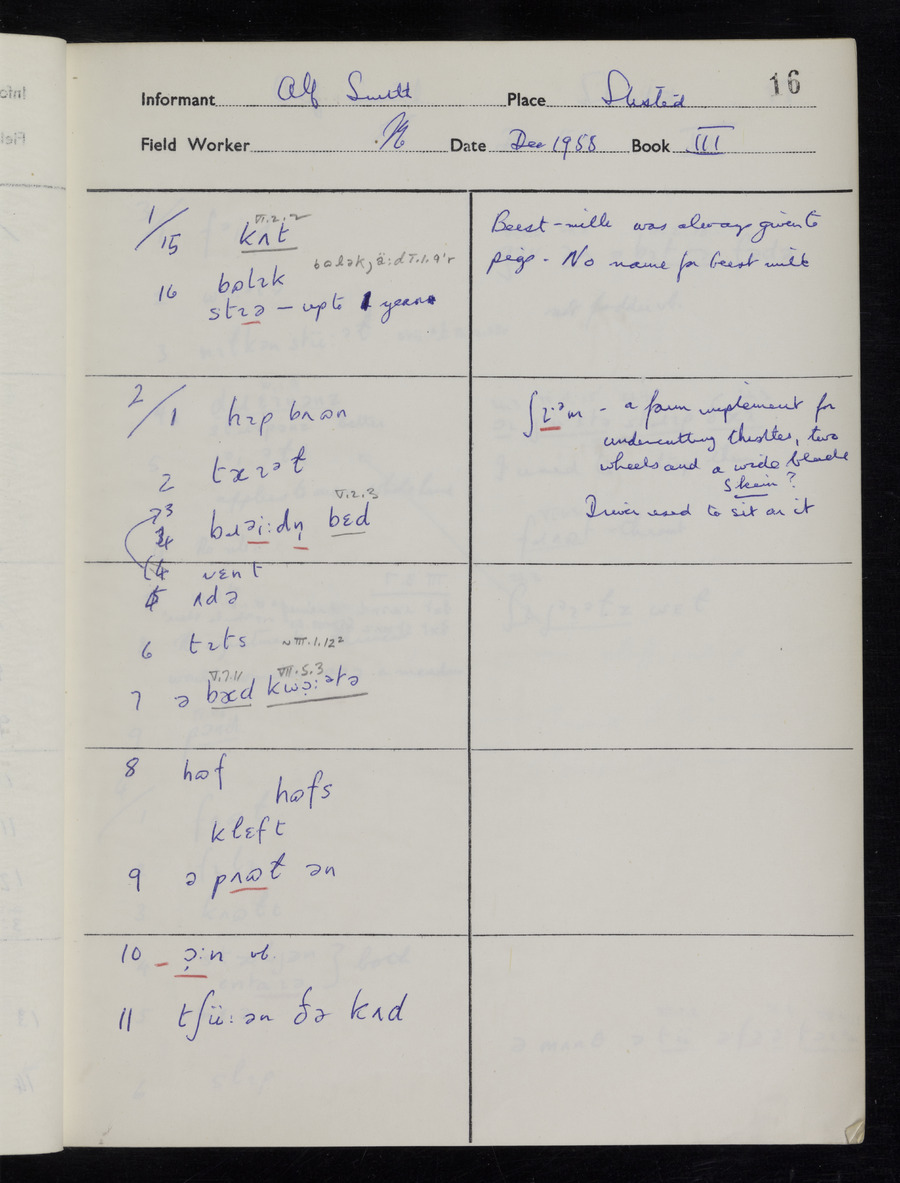 16
Informant Alf Smith Place
Field Worker Date Dec 1958 Book III
1/15 kʌt VI.2.2
bɒlək jä:d V.1.9'r
16 bɒlɪk
stɪə – up to 1 year
Beest-milk was always given to
pigs. No name for beest milk
2/1 hɪp bʌɷn
2 tæɪət
3 bɹəi:dn̩ bɛd V.2.3
4 vɛnt
5 ʌdə
6 tɪts ~III.1.12²
7 ə bæd kwɔ̣:ətə V.7.11 VII.5.3
ʃɪ·əm – a farm implement for
undercutting thistles, two
wheels and a wide blade
Skein?
Driver used to sit on it
8 hɷf
hɷfs
klɛft
9 ə pʌɷt ən
10 – ɔ̣:n vb.
11 tʃü:ən ðə kʌd